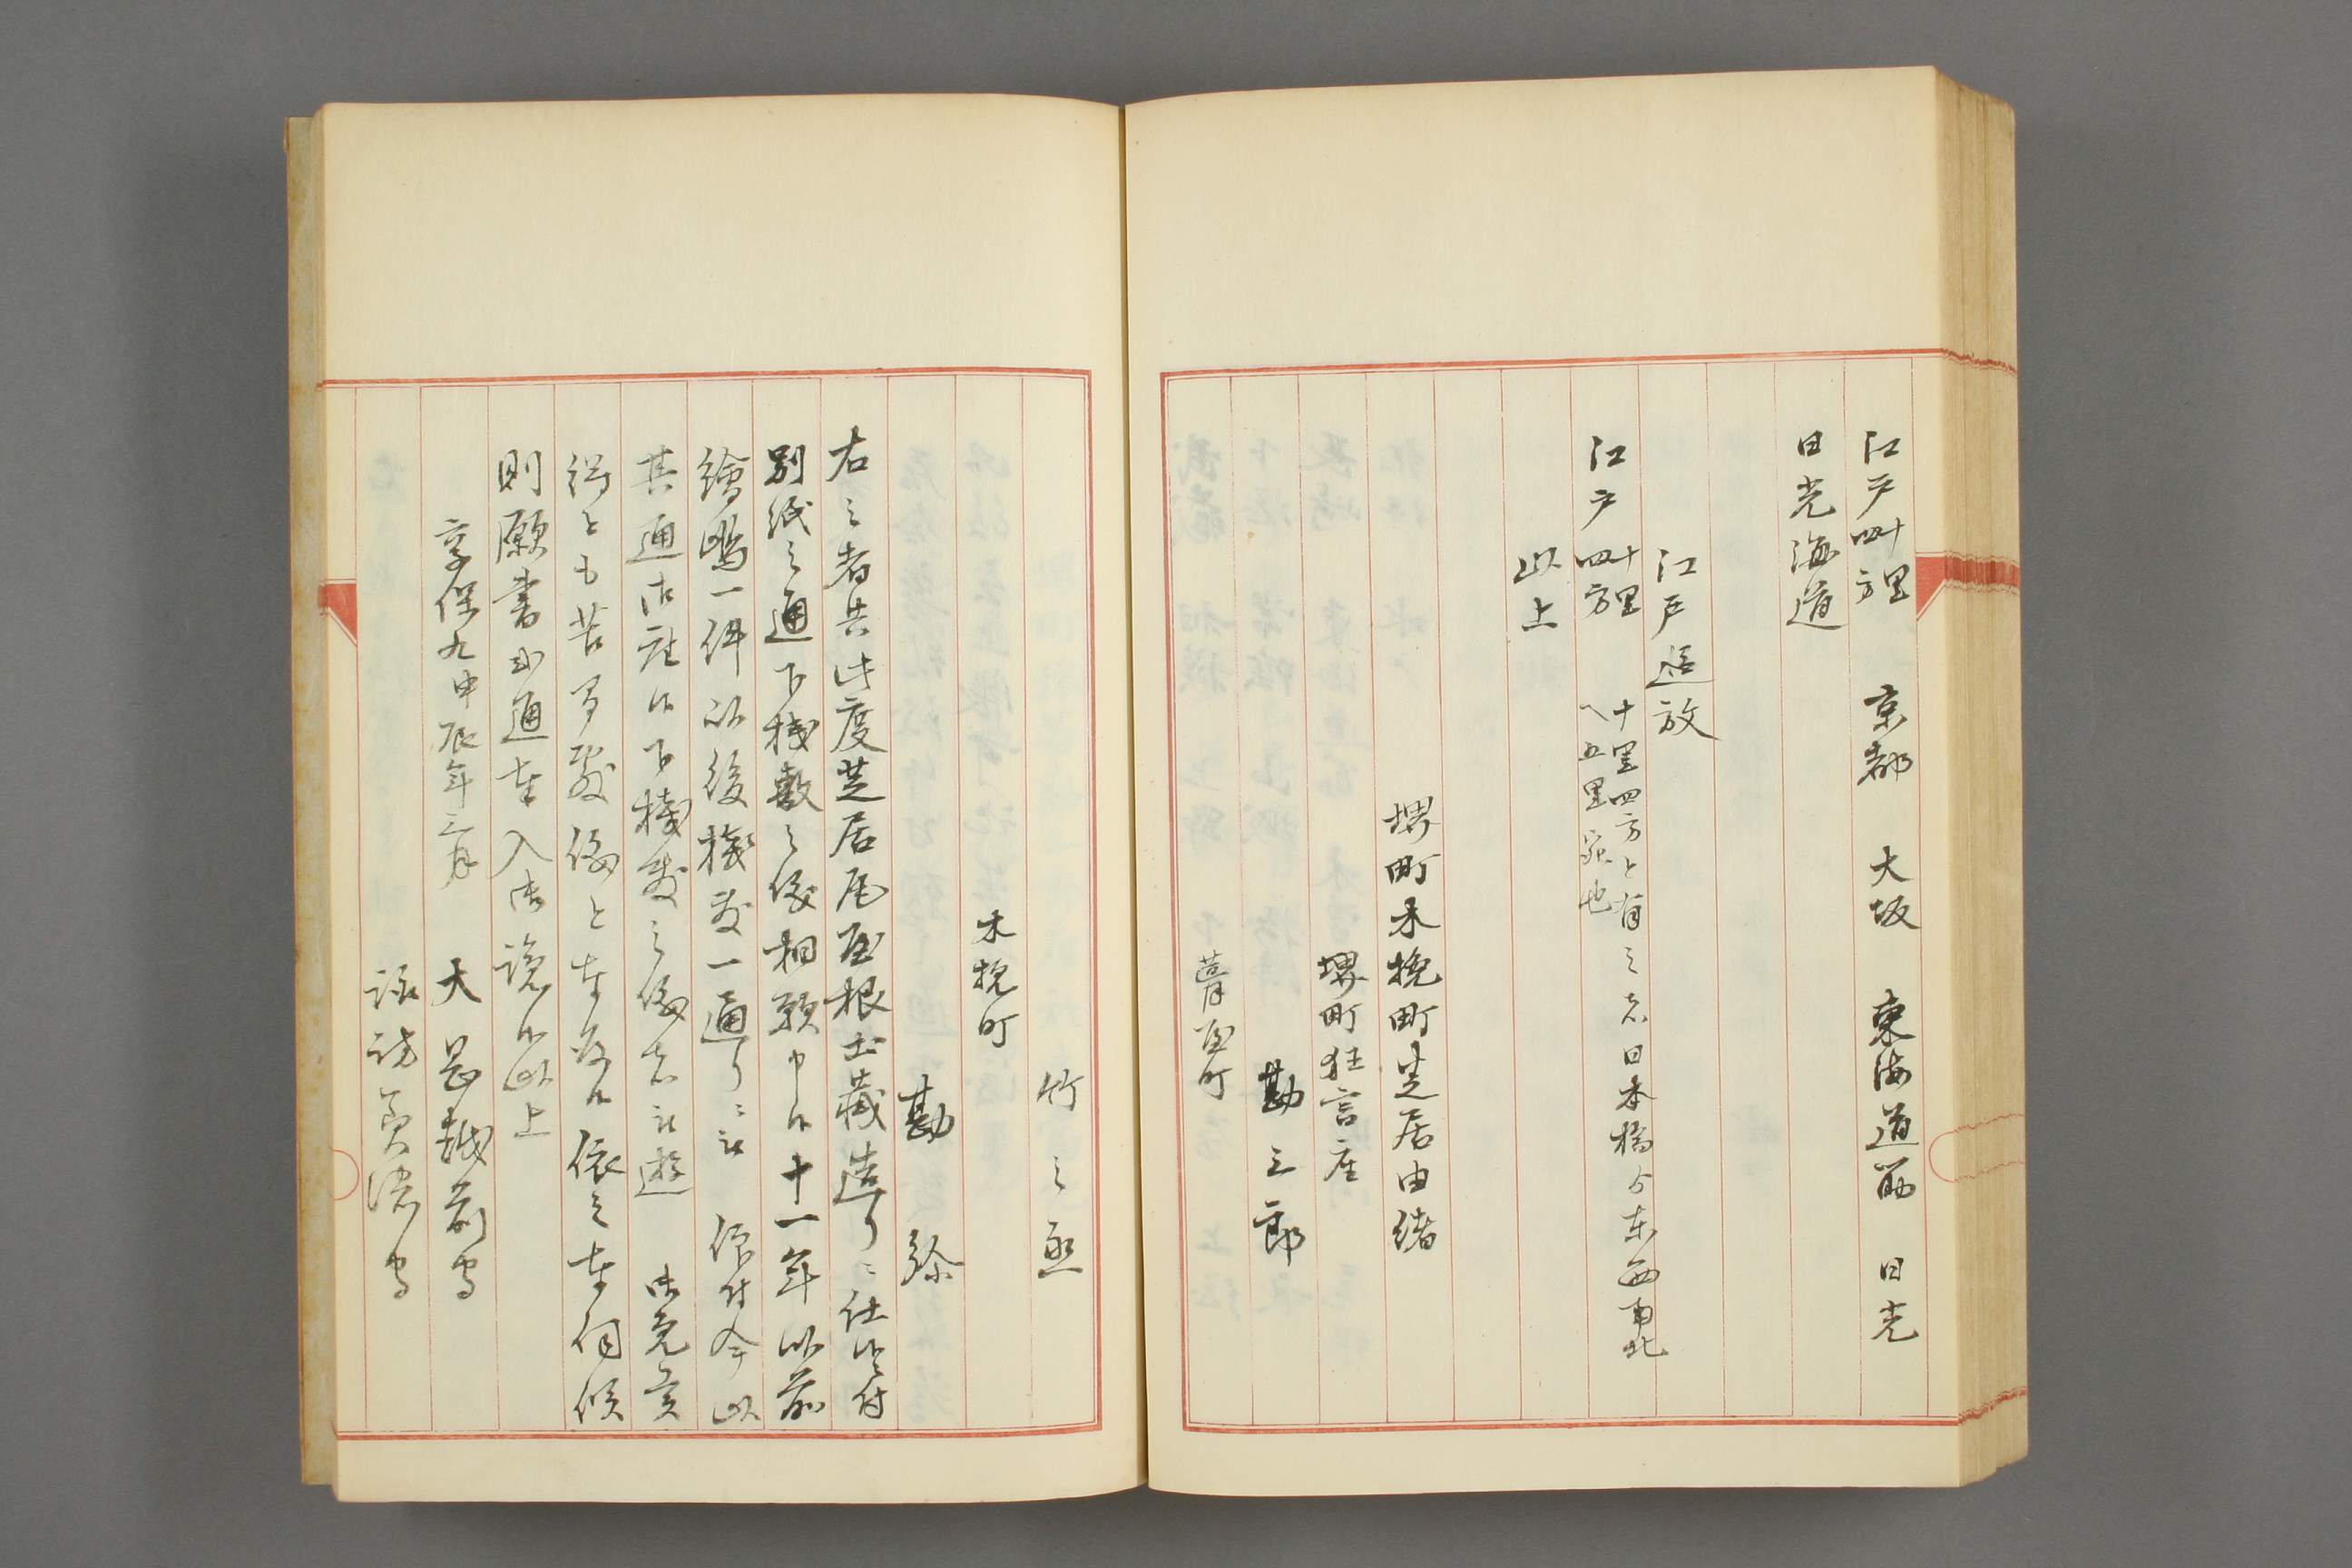 江戸四十里方 京都 大坂 東海道筋 日光
日光海道
江戸追放
江戸四十里方
十里四方と有之者日本橋ゟ東西南北
へ五里宛也
以上
堺町木挽町芝居由緒
堺町狂言座
勘三郎
葺屋町
竹之丞
木挽町
勘弥
右之者共此度芝居屋根土蔵造りニ仕候付
別紙之通下桟敷之儀相願申候十一年以前
絵嶋一件以後桟敷一通りニ被 仰付今以
其通御座候下桟敷之儀者被遊 御免
得とも苦間敷儀と奉存候依之奉伺候
則願書弐通奉入御読候以上
享保九甲辰年三月 大岡越前守
諏訪美濃守